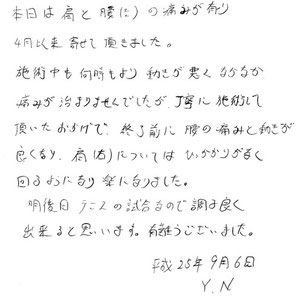 本日は肩と腰(右)の痛みが有り
4月以来寄せて頂きました。
施術中も何時もより動きが悪くなかなか
痛みが治まりませんでしたが、丁寧に施術して
頂いたおかげで、終了前に腰の痛みと動きが
良くなり、肩(右)についてはひっかかりがなく
回るようになり楽になりました。
明後日テニスの試合なので調子良く
出来ると思います。有難うございました。
平成25年9月6日
Y.N